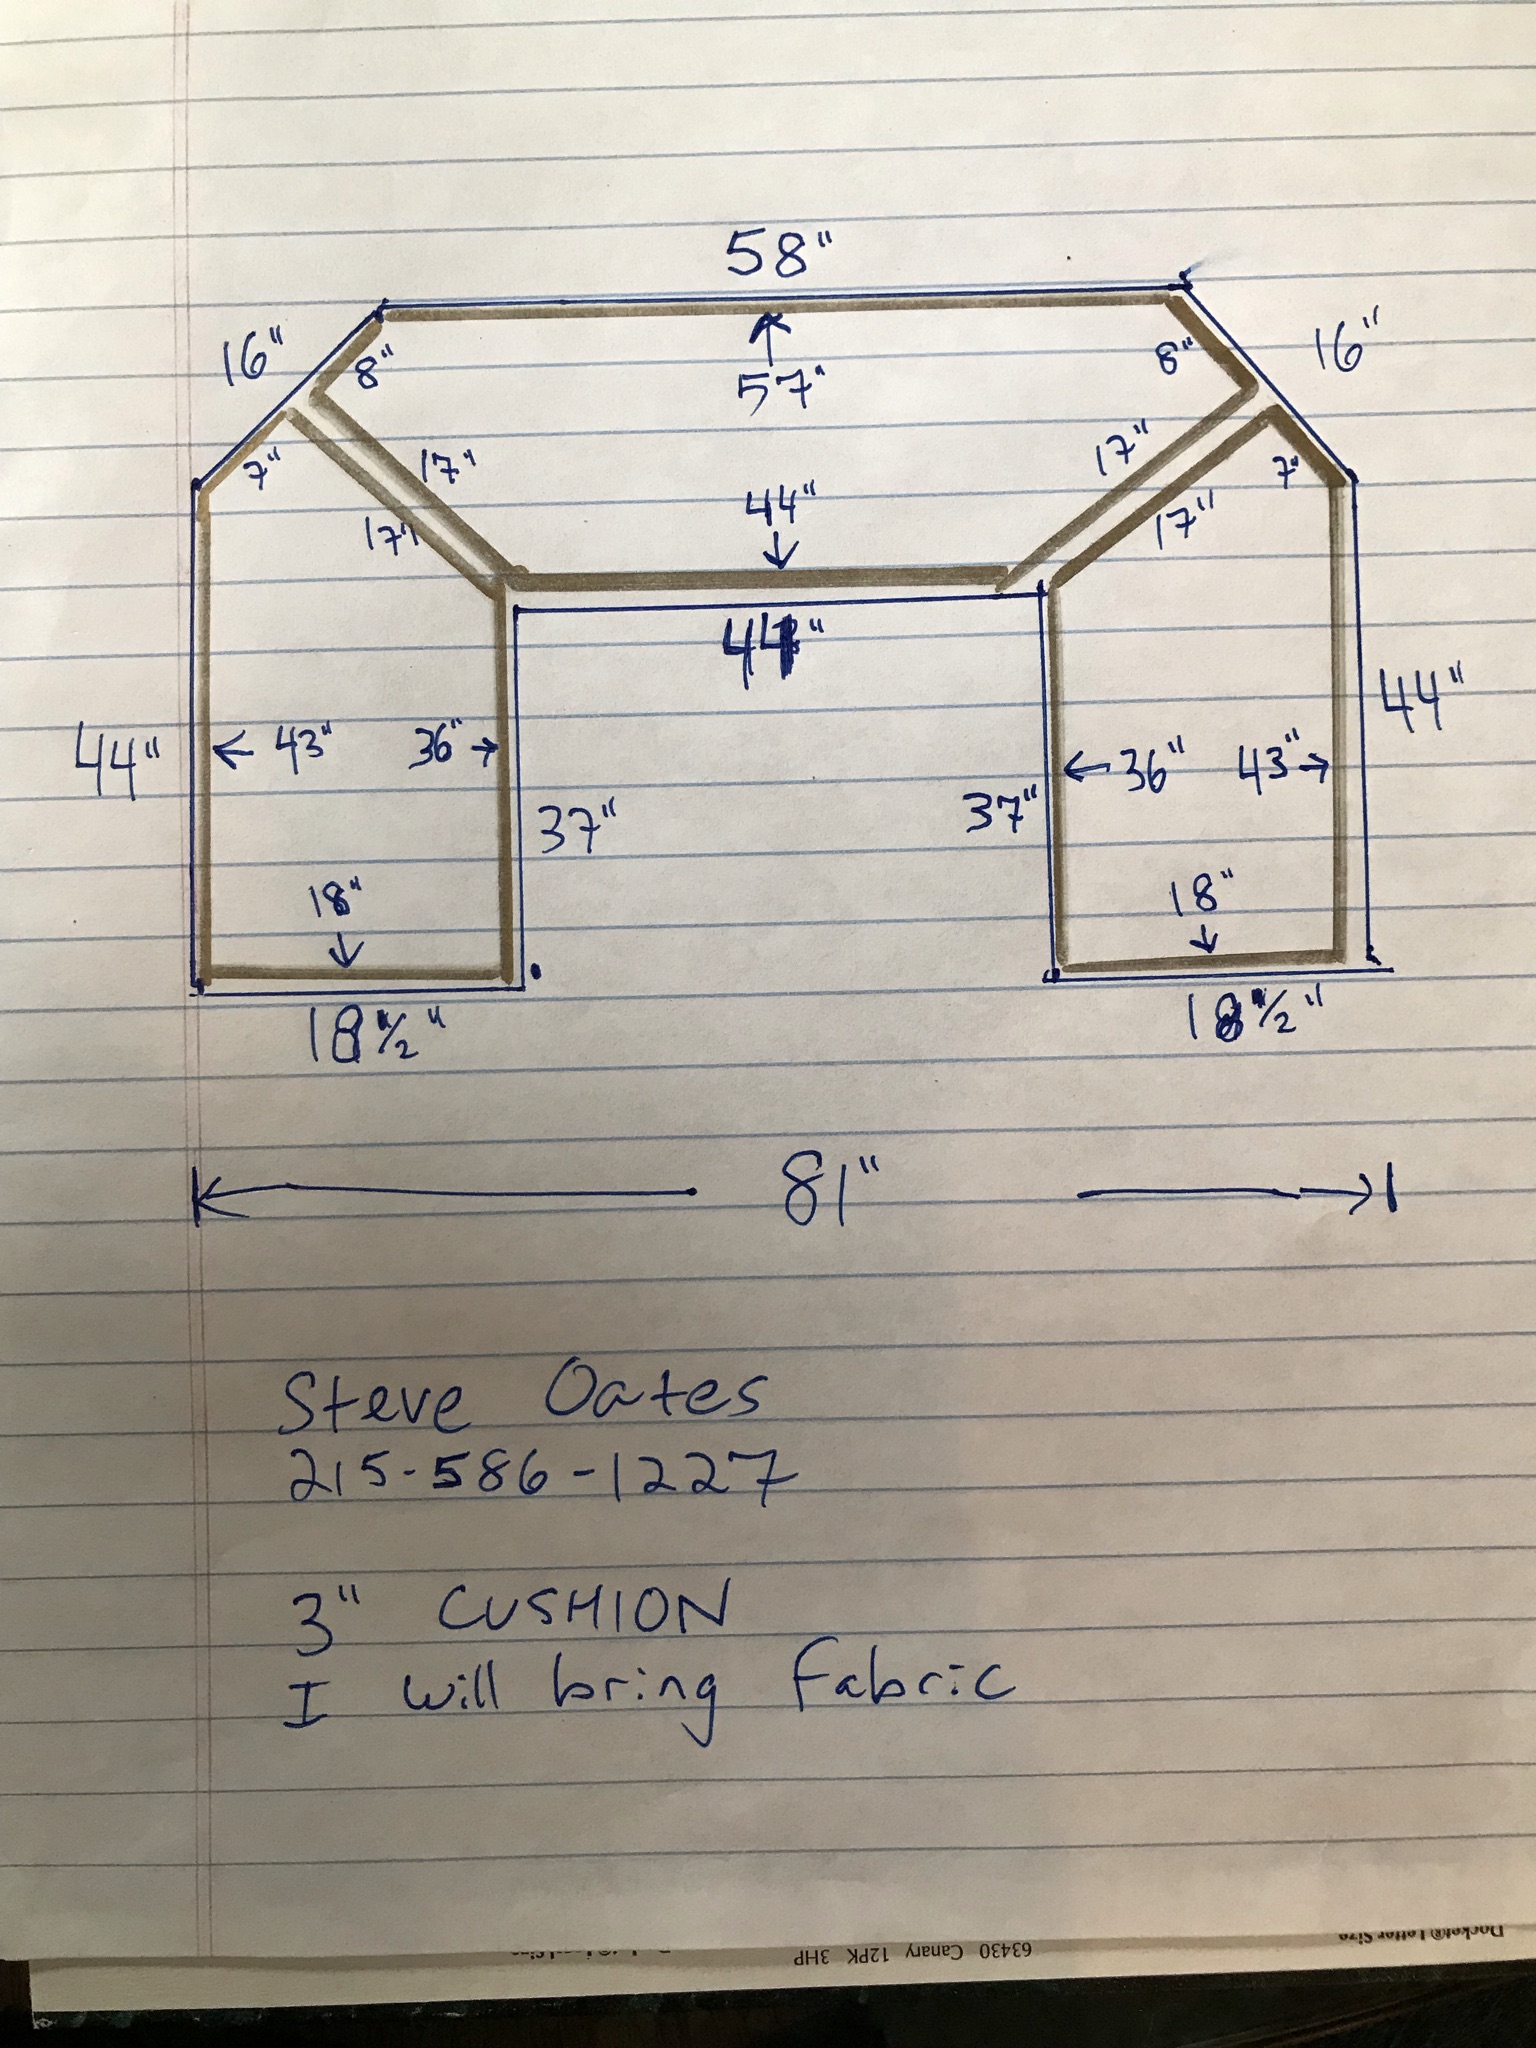 58"
16"
8"
57"
8"
16"
7"
17"
17"
7"
17"
44"
17"
44"
44"
43"
36"
37"
37"
36"
43"
44"
18"
18"
18 1/2"
18 1/2"
81"
Steve Oates
215-586-1227
3" CUSHION
I will bring Fabric
Docket® Letter Size
63430 Canary 12PK 3HP